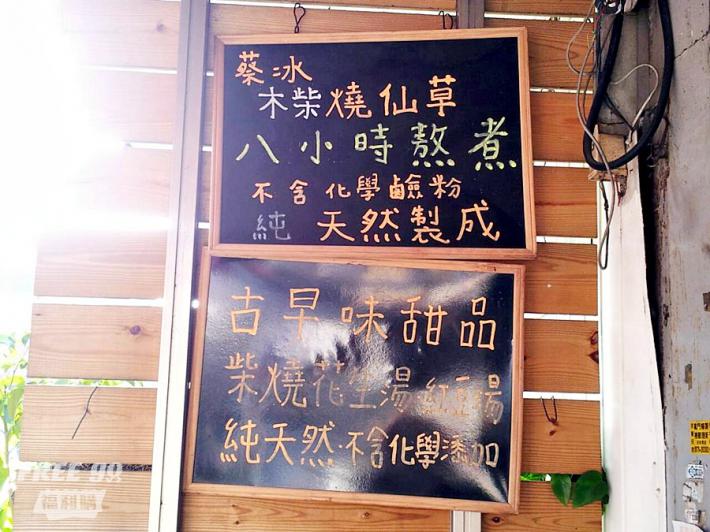 蔡冰
木柴燒仙草
八小時熬煮
不含化學鹼粉
純 天然製成
古早味甜品
柴燒花生湯.紅豆湯
純天然.不含化學添加
FREE GO
福利購